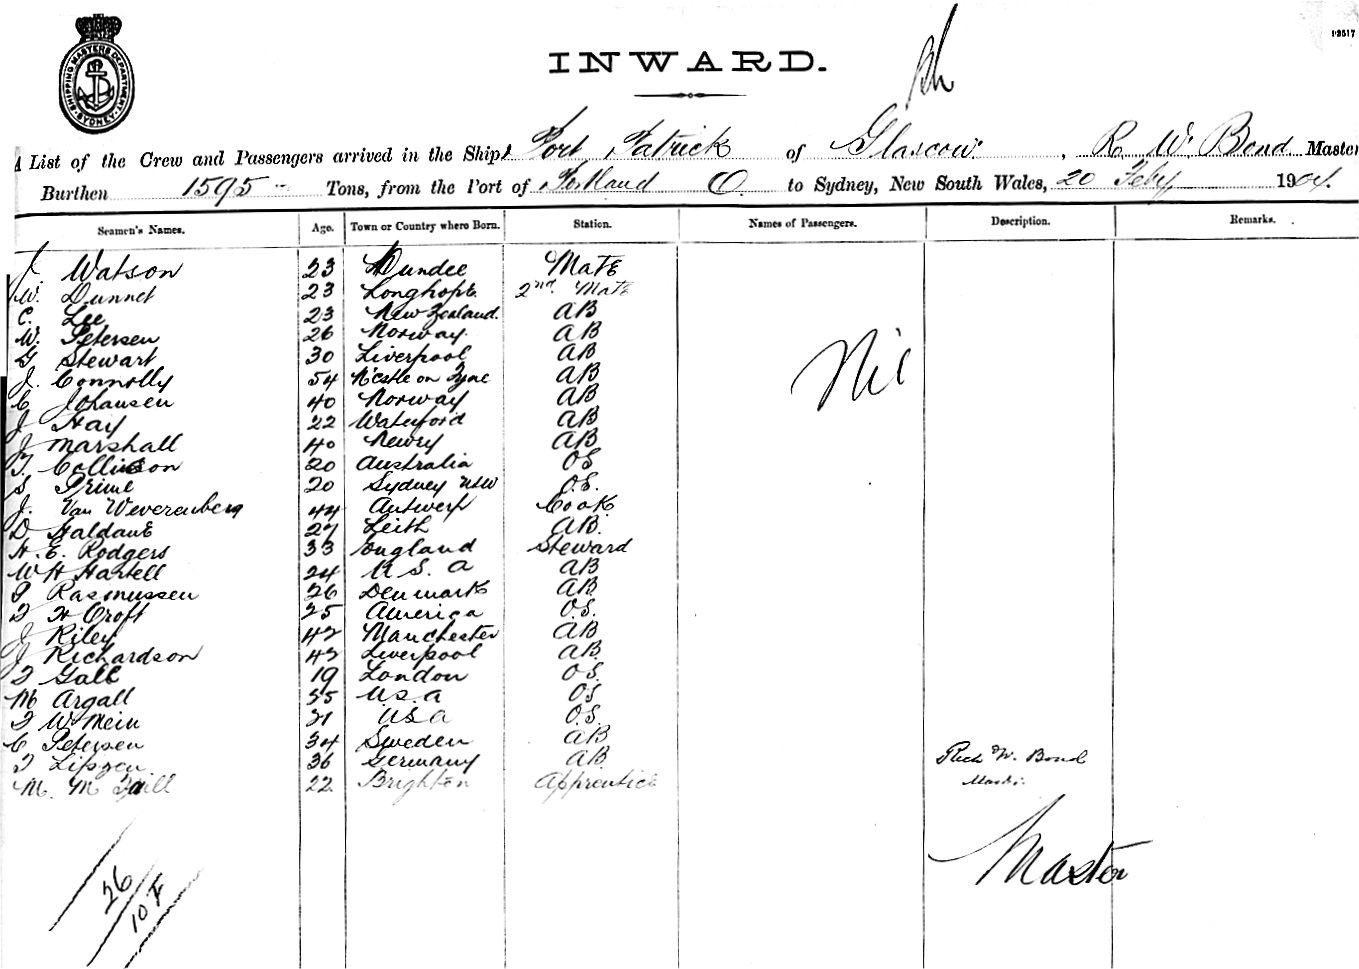 12517
INWARD.
SHIPPING MASTERS DEPARTMENT SYDNEY
A List of the Crew and Passengers arrived in the Ship Port Patrick of Glascow, R. W. Bond Master
Burthen 1595 Tons, from the Port of Portland O. to Sydney, New South Wales, 20 Feby 1904.
Seamen's Names. Age. Town or Country where Born. Station. Names of Passengers. Description. Remarks.
J. Watson 23 Dundee Mate
W. Dunnet 23 Longhope 2nd. Mate
C. Lee 23 New Zealand. AB
W. Petersen 26 Norway. AB
G Stewart 30 Liverpool AB
J. Connolly 54 N'castle on Tyne AB
C Johansen 40 Norway AB
J Hay 22 Waterford AB
J Marshall 40 Newry AB
T. Collinson 20 Australia OS
S Prime 20 Sydney NSW O.S.
J. Van Weverenberg 44 Antwerp Cook
D Haldane 27 Leith AB.
H. E. Rodgers 33 England Steward
W H Hartell 24 U.S.A AB
P Rasmussen 26 Denmark AB
T H Croft 25 America O.S.
J Riley 42 Manchester AB
J Richardson 43 Liverpool AB.
T Gale 19 London O.S.
M Argall 35 U.S.A OS
T W Mein 21 USA O.S.
C Petersen 34 Sweden AB
T Lipzen 36 Germany AB.
M. M 22 Brighton Apprentice
Nil
Rich W. Bond
Master
Master
26
10 F